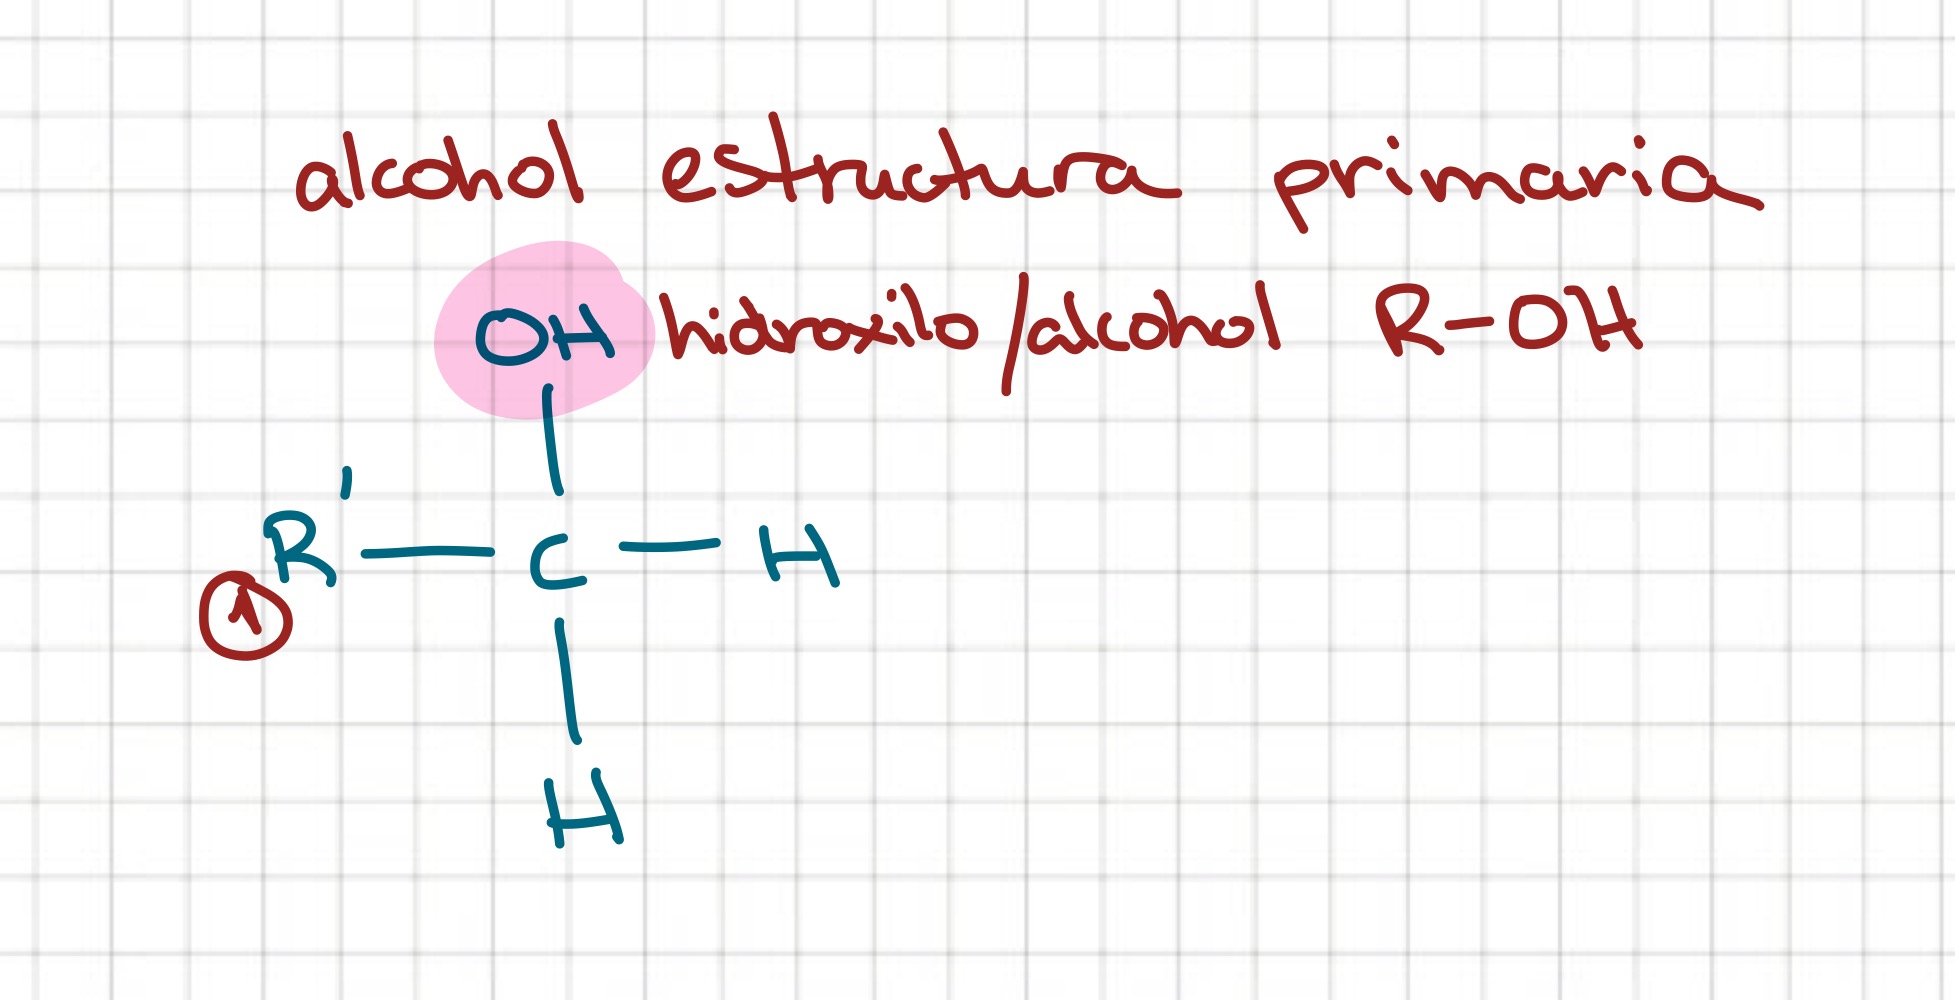 alcohol estructura primaria
OH hidroxilo/alcohol R-OH
R' — C — H
1
H